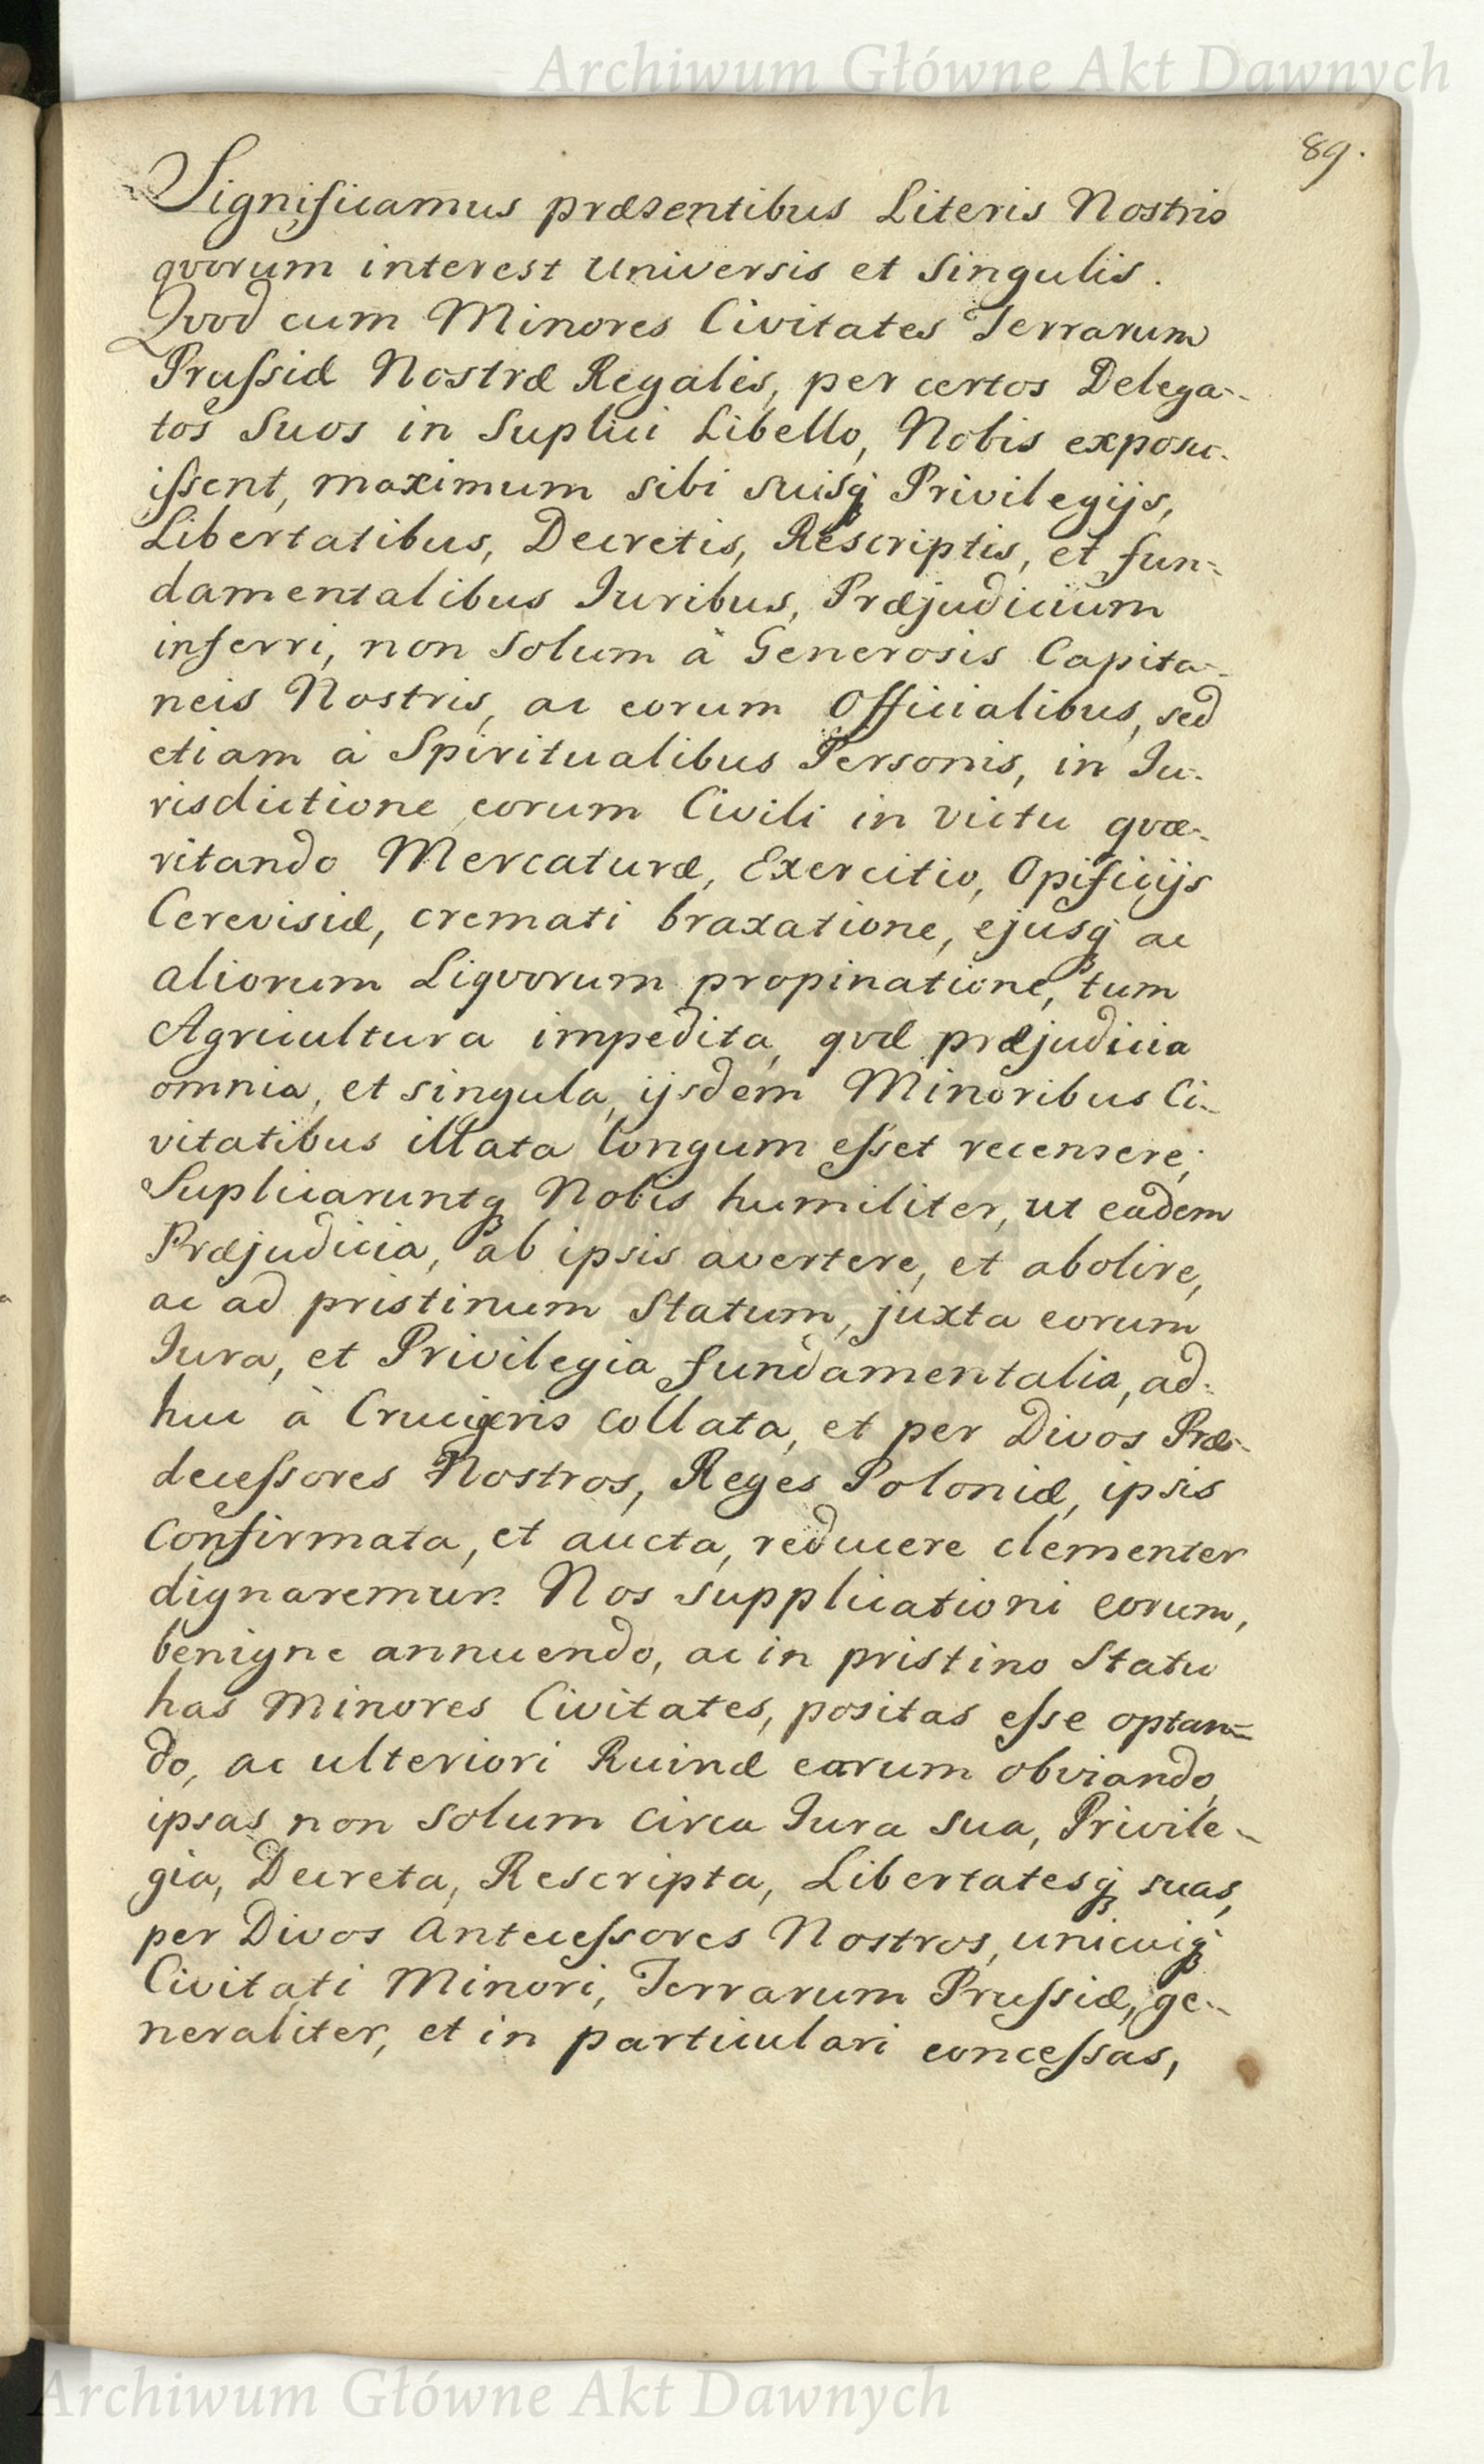 Archiwum Główne Akt Dawnych
89.
Significamus præsentibus Literis Nostris
qvorum interest Universis et Singulis.
Qvod cum Minores Civitates Terrarum
Prussiæ Nostræ Regalis, per certos Delega-
tos Suos in Suplici Libello, Nobis exposu-
issent, maximum sibi suisq Privilegijs,
Libertatibus, Decretis, Rescriptis, et fun-
damentalibus Juribus, Præjudicium
inferri, non Solum à Generosis Capita-
neis Nostris, ac eorum Officialibus, sed
etiam à Spiritualibus Personis, in Ju-
risdictione eorum Civili in victu qvæ-
ritando Mercaturæ, Exercitio, Opificijs
Cerevisiæ, cremati braxatione, ejusq ac
aliorum Liqvorum propinatione, tum
Agricultura impedita, qvæ præjudicia
omnia, et singula, ijsdem Minoribus Ci-
vitatibus illata longum esset recensere;
Suplicaruntq Nobis humiliter, ut eadem
Præjudicia, ab ipsis avertere, et abolire,
ac ad pristinum Statum, juxta eorum
Jura, et Privilegia fundamentalia, ad-
huc à Crucigeris collata, et per Divos Præ-
decessores Nostros, Reges Poloniæ, ipsis
Confirmata, et aucta, reducere clementer
dignaremur. Nos supplicationi eorum,
benigne annuendo, ac in pristino Statu
has Minores Civitates, positas esse optan=
do, ac ulteriori Ruinæ earum obviando,
ipsas non Solum circa Jura sua, Privile-
gia, Decreta, Rescripta, Libertatesq suas,
per Divos Antecessores Nostros, unicuiq
Civitati Minori, Terrarum Prussiæ, ge-
neraliter, et in particulari concessas,
Archiwum Główne Akt Dawnych